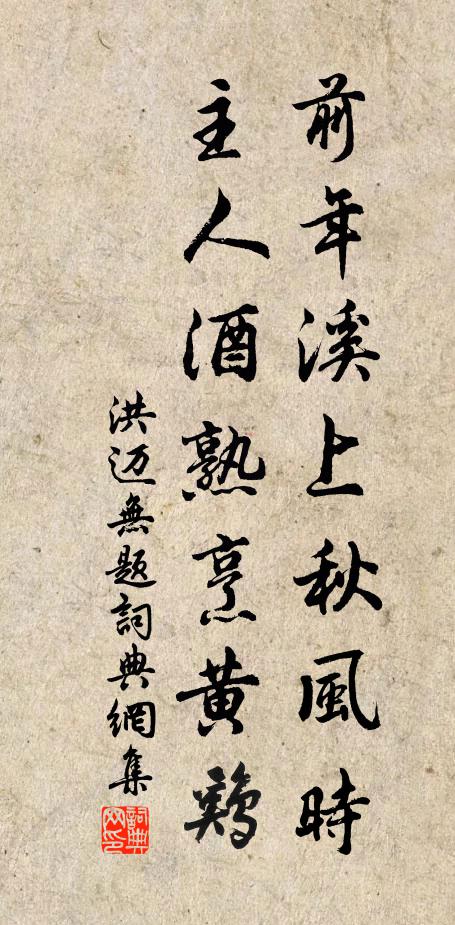 前年溪上秋風時
主人酒熟烹黄鷄
洪迈無題詞典網集
詞典网印